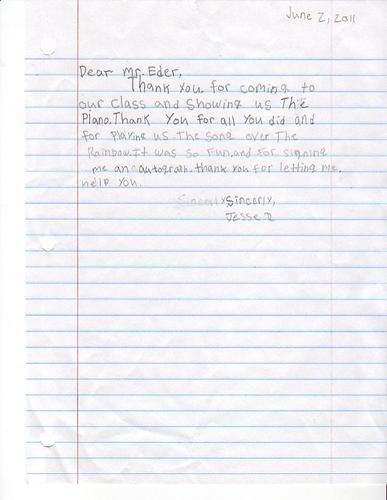 June 2, 2011
Dear Mr. Eder,
Thank you. for coming to
our class and showing us The
Piano. Thank You for all you did and
for Playing us. The song over The
Rainbow. It was so Fun. and For signing
me an autograph. thank you for letting me.
help you.
Sincerly Sincerly,
Jesse R